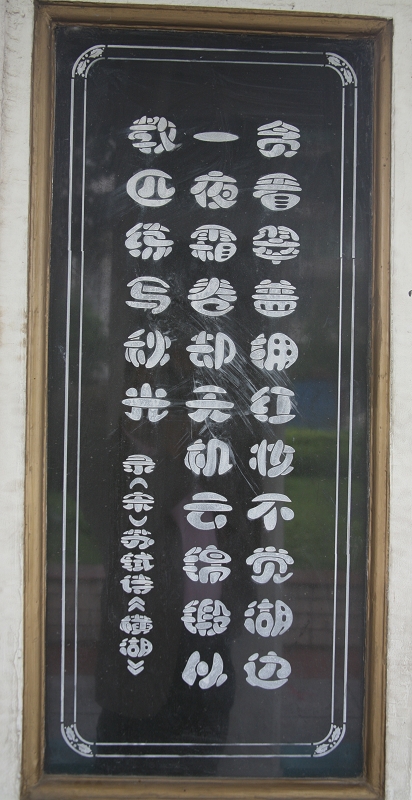 贪看翠盖拥红妆不觉湖边
一夜霜卷却天机云锦缎从
教匹练写秋光 录(宋)苏轼诗《横湖》